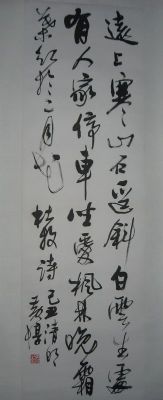 遠上寒山石逕斜白雲生處
有人家停車坐愛楓林晚霜
葉紅於二月花 杜牧詩 己丑清明